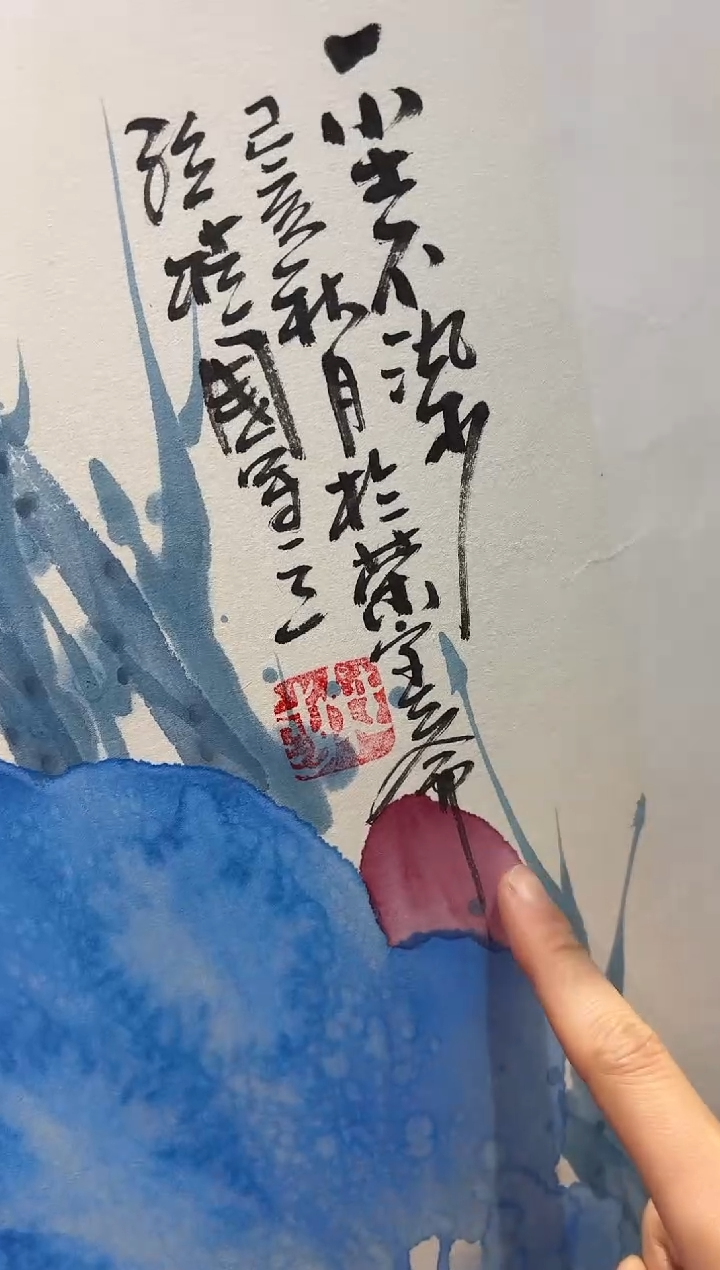 一尘不染
己亥秋月於荣宝斋
桂国军